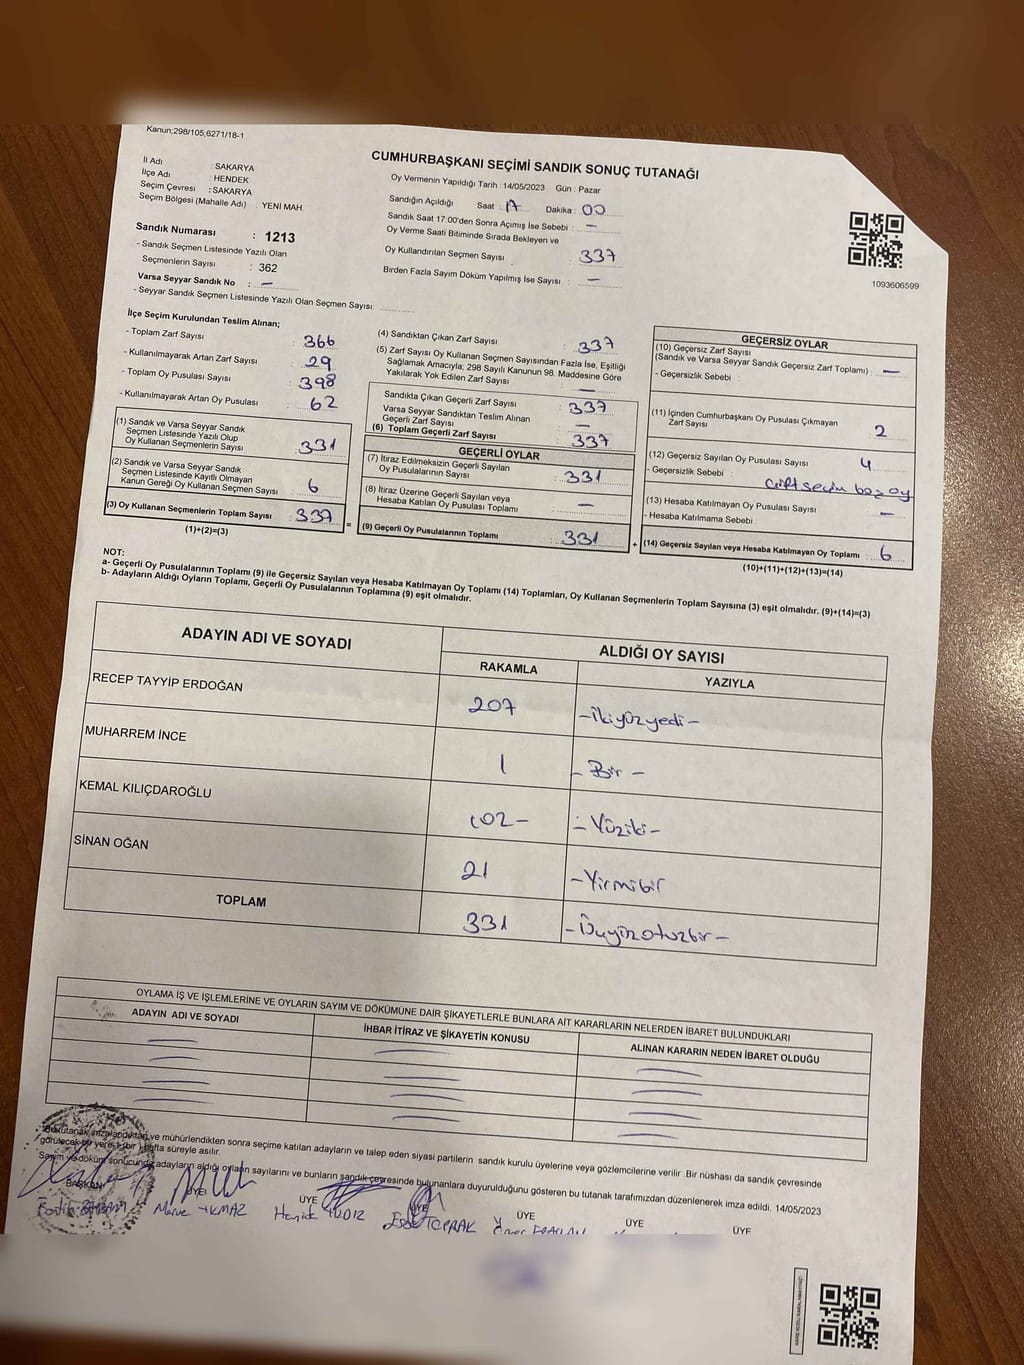 Kanun;298/105,6271/18-1
CUMHURBAŞKANI SEÇİMİ SANDIK SONUÇ TUTANAĞI
İl Adı : SAKARYA
İlçe Adı : HENDEK
Seçim Çevresi : SAKARYA
Seçim Bölgesi (Mahalle Adı) : YENİ MAH.
Sandık Numarası : 1213
- Sandık Seçmen Listesinde Yazılı Olan
Seçmenlerin Sayısı : 362
Varsa Seyyar Sandık No : —
- Seyyar Sandık Seçmen Listesinde Yazılı Olan Seçmen Sayısı:
Oy Vermenin Yapıldığı Tarih : 14/05/2023 Gün : Pazar
Sandığın Açıldığı Saat : 17 Dakika : 00
Sandık Saat 17:00'den Sonra Açımış İse Sebebi : —
Oy Verme Saati Bitiminde Sırada Bekleyen ve
Oy Kullandırılan Seçmen Sayısı : 337
Birden Fazla Sayım Döküm Yapılmış İse Sayısı : —
1093606599
İlçe Seçim Kurulundan Teslim Alınan;
- Toplam Zarf Sayısı : 366
- Kullanılmayarak Artan Zarf Sayısı : 29
- Toplam Oy Pusulası Sayısı : 398
- Kullanılmayarak Artan Oy Pusulası : 62
(1) Sandık ve Varsa Seyyar Sandık
Seçmen Listesinde Yazılı Olup
Oy Kullanan Seçmenlerin Sayısı : 331
(2) Sandık ve Varsa Seyyar Sandık
Seçmen Listesinde Kayıtlı Olmayan
Kanun Gereği Oy Kullanan Seçmen Sayısı : 6
(3) Oy Kullanan Seçmenlerin Toplam Sayısı : 337
(1)+(2)=(3)
=
(4) Sandıktan Çıkan Zarf Sayısı : 337
(5) Zarf Sayısı Oy Kullanan Seçmen Sayısından Fazla İse, Eşitliği
Sağlamak Amacıyla; 298 Sayılı Kanunun 98. Maddesine Göre
Yakılarak Yok Edilen Zarf Sayısı : —
Sandıkta Çıkan Geçerli Zarf Sayısı : 337
Varsa Seyyar Sandıktan Teslim Alınan
Geçerli Zarf Sayısı : —
(6) Toplam Geçerli Zarf Sayısı : 337
GEÇERLİ OYLAR
(7) İtiraz Edilmeksizin Geçerli Sayılan
Oy Pusulalarının Sayısı : 331
(8) İtiraz Üzerine Geçerli Sayılan veya
Hesaba Katılan Oy Pusulası Toplamı : —
(9) Geçerli Oy Pusulalarının Toplamı : 331
+
GEÇERSİZ OYLAR
(10) Geçersiz Zarf Sayısı
(Sandık ve Varsa Seyyar Sandık Geçersiz Zarf Toplamı) : —
- Geçersizlik Sebebi :
(11) İçinden Cumhurbaşkanı Oy Pusulası Çıkmayan
Zarf Sayısı : 2
(12) Geçersiz Sayılan Oy Pusulası Sayısı : 4
- Geçersizlik Sebebi : çift seçim boz oy
(13) Hesaba Katılmayan Oy Pusulası Sayısı : —
- Hesaba Katılmama Sebebi
(14) Geçersiz Sayılan veya Hesaba Katılmayan Oy Toplamı : 6
(10)+(11)+(12)+(13)=(14)
NOT:
a- Geçerli Oy Pusulalarının Toplamı (9) ile Geçersiz Sayılan veya Hesaba Katılmayan Oy Toplamı (14) Toplamları, Oy Kullanan Seçmenlerin Toplam Sayısına (3) eşit olmalıdır. (9)+(14)=(3)
b- Adayların Aldığı Oyların Toplamı, Geçerli Oy Pusulalarının Toplamına (9) eşit olmalıdır.
ADAYIN ADI VE SOYADI ALDIĞI OY SAYISI
RAKAMLA YAZIYLA
RECEP TAYYİP ERDOĞAN 207 -İkiyüzyedi-
MUHARREM İNCE 1 - Bir -
KEMAL KILIÇDAROĞLU 102- - Yüziki-
SİNAN OĞAN 21 -Yirmibir
TOPLAM 331 -Üçyüzotuzbir-
OYLAMA İŞ VE İŞLEMLERİNE VE OYLARIN SAYIM VE DÖKÜMÜNE DAİR ŞİKAYETLERLE BUNLARA AİT KARARLARIN NELERDEN İBARET BULUNDUKLARI
ADAYIN ADI VE SOYADI İHBAR İTİRAZ VE ŞİKAYETİN KONUSU ALINAN KARARIN NEDEN İBARET OLDUĞU
Bu tutanak imzalandıktan ve mühürlendikten sonra seçime katılan adayların ve talep eden siyasi partilerin sandık kurulu üyelerine veya gözlemcilerine verilir. Bir nüshası da sandık çevresinde
görülecek bir yere 1 (bir) hafta süreyle asılır.
Sayım ve döküm sonucunda adayların aldığı oyların sayılarını ve bunların sandık çevresinde bulunanlara duyurulduğunu gösteren bu tutanak tarafımızdan düzenlenerek imza edildi. 14/05/2023
BAŞKAN ÜYE ÜYE ÜYE ÜYE ÜYE ÜYE
Merve YILMAZ YILDIZ TOPRAK Ömer